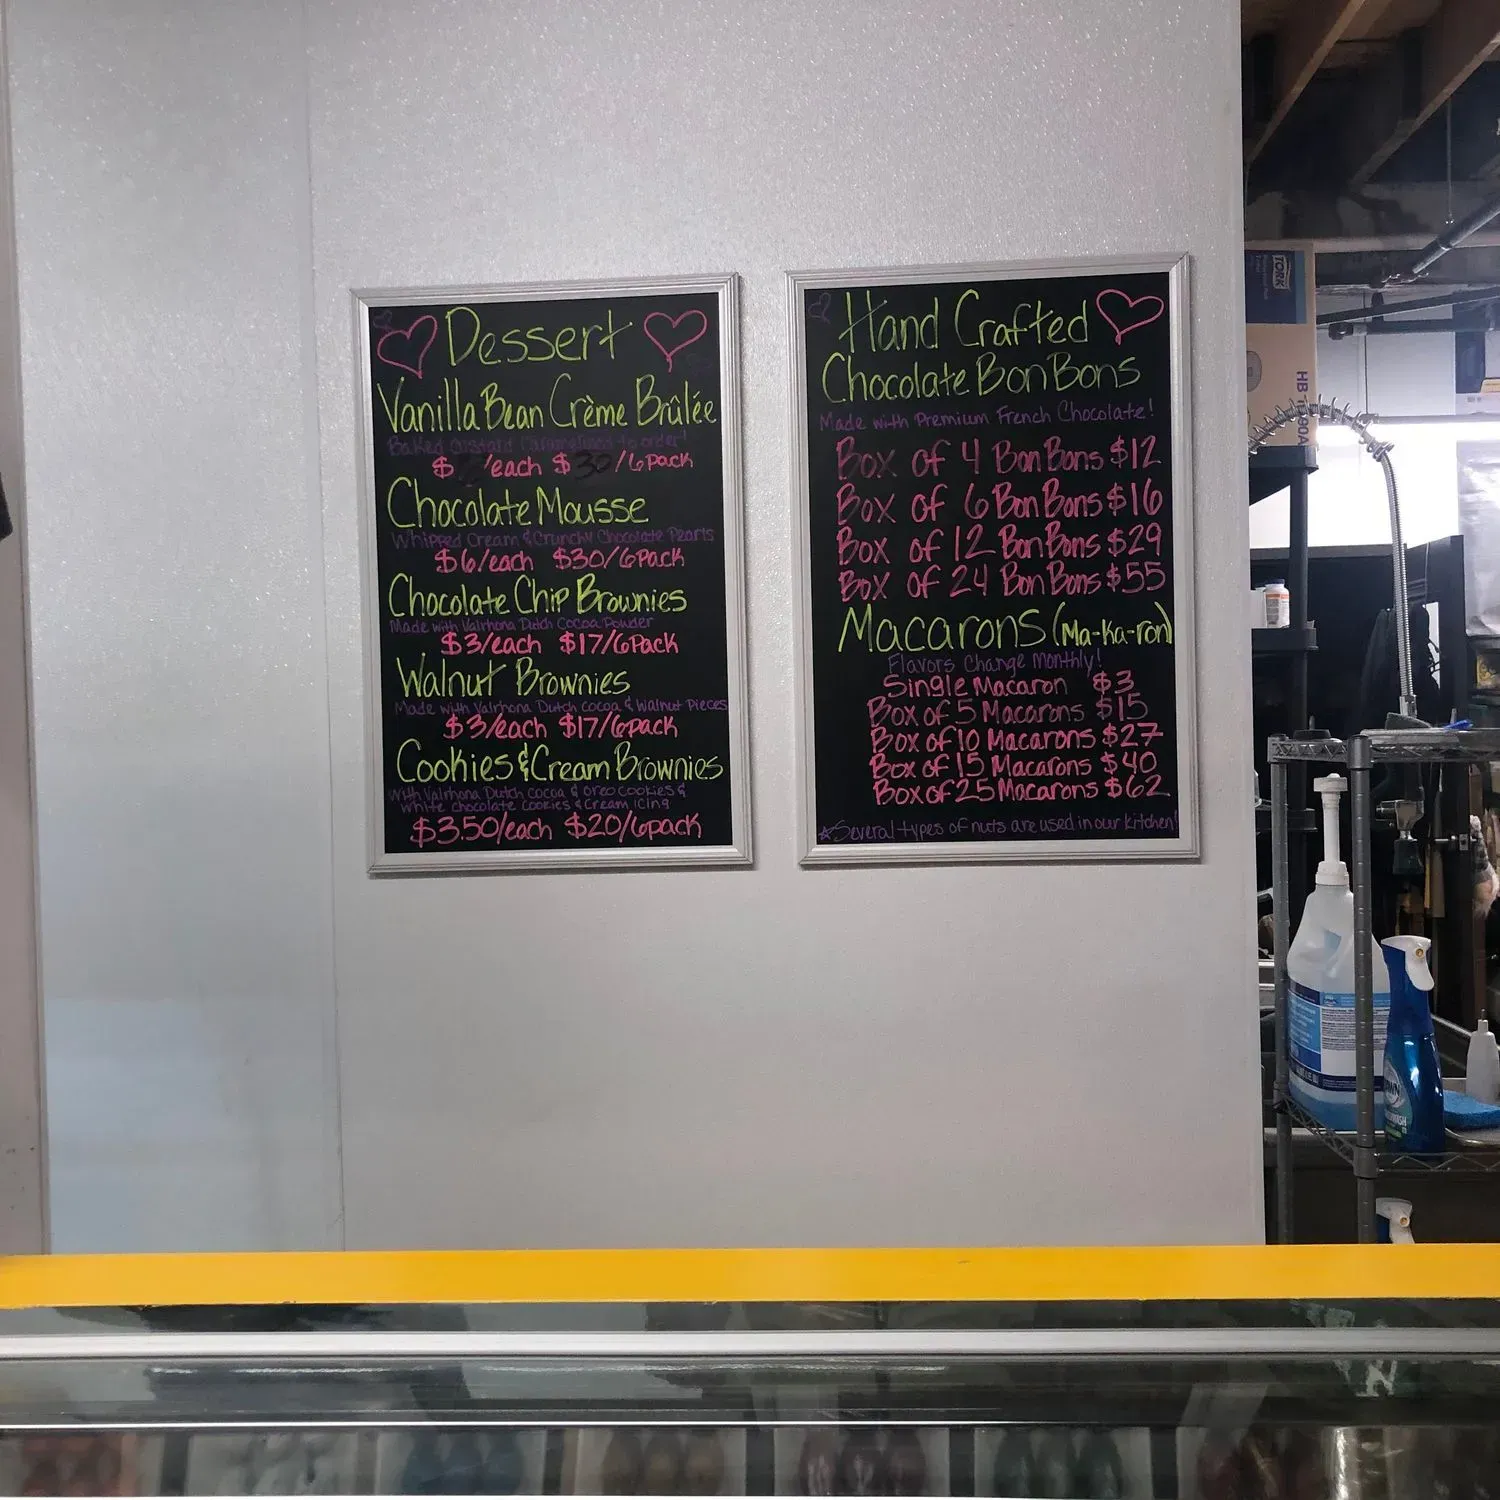 Dessert
Vanilla Bean Crème Brûlée
Baked Custard Caramelized to order!
$ /each $30/6pack
Chocolate Mousse
Whipped Cream & Crunchy Chocolate Pearls
$6/each $30/6pack
Chocolate Chip Brownies
Made with Valrhona Dutch Cocoa Powder
$3/each $17/6pack
Walnut Brownies
Made with Valrhona Dutch Cocoa & Walnut Pieces
$3/each $17/6pack
Cookies & Cream Brownies
With Valrhona Dutch cocoa & oreo cookies &
white chocolate cookies & cream icing
$3.50/each $20/6pack
Hand Crafted
Chocolate BonBons
Made with Premium French Chocolate!
Box of 4 BonBons $12
Box of 6 BonBons $16
Box of 12 BonBons $29
Box of 24 BonBons $55
Macarons (Ma-ka-ron)
Flavors Change Monthly!
Single Macaron $3
Box of 5 Macarons $15
Box of 10 Macarons $27
Box of 15 Macarons $40
Box of 25 Macarons $62
*Several types of nuts are used in our kitchen!
TORK